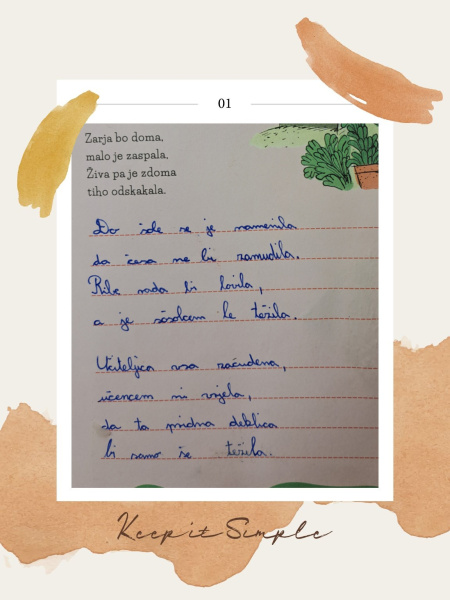 01
Zarja bo doma,
malo je zaspala,
Živa pa je zdoma
tiho odskakala.
Do šole se je namenila
da časa ne bi zamudila.
Ribe rada bi lovila,
a je sošolcem le težila.
Učiteljica vsa začudena,
učencem ni verjela,
da ta pridna deklica
bi samo še težila.
Keep it Simple